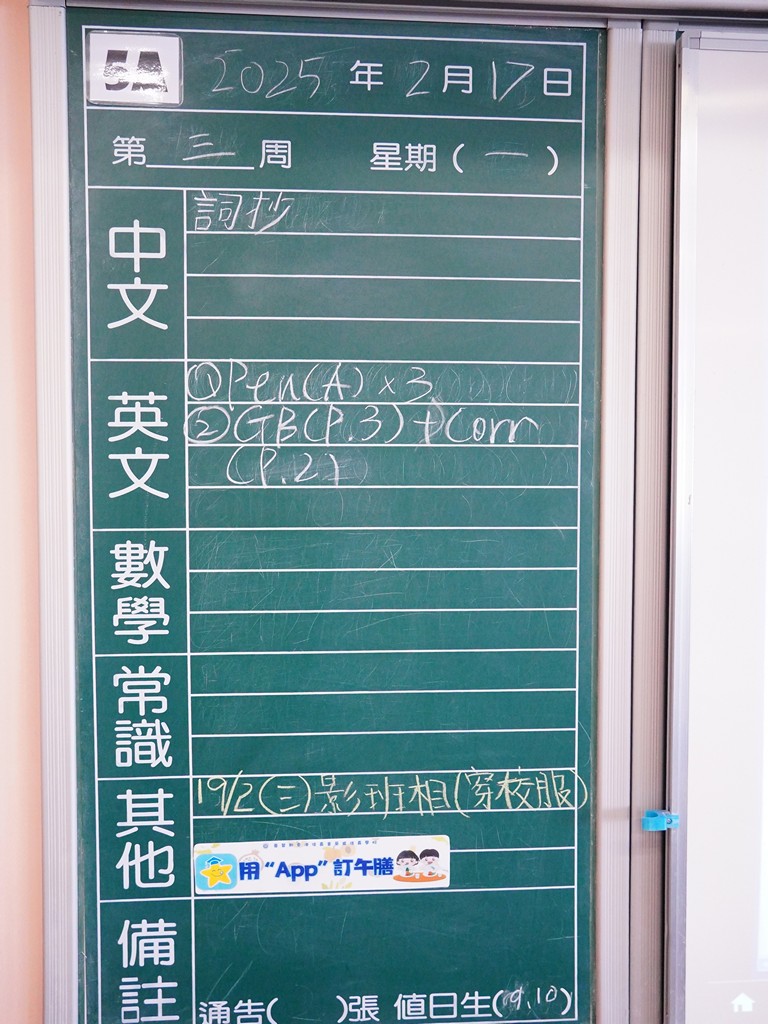 5A 2025 年 2 月 17 日
第 三 周 星期 ( 一 )
中文
詞抄
英文
① Pen(A) x 3
② GB(P.3) + Corr
(P.2)
數學
常識
其他
19/2 (三) 影班相 (穿校服)
用 “App” 訂午膳
備註
通告( )張 值日生(9.10)